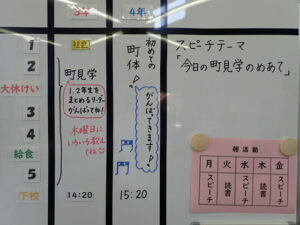 3年
4年
1
2
大休けい
3
4
給食
5
下校
社会
町見学
1、2年生を
まとめるリーダー
がんばってね!
木曜日に
いろいろ教え
てね
14:20
初めての
町体!
がんばってきます!
15:20
スピーチテーマ
「今日の町見学のめあて」
朝活動
月 火 水 木 金
スピーチ 読書 スピーチ 読書 スピーチ